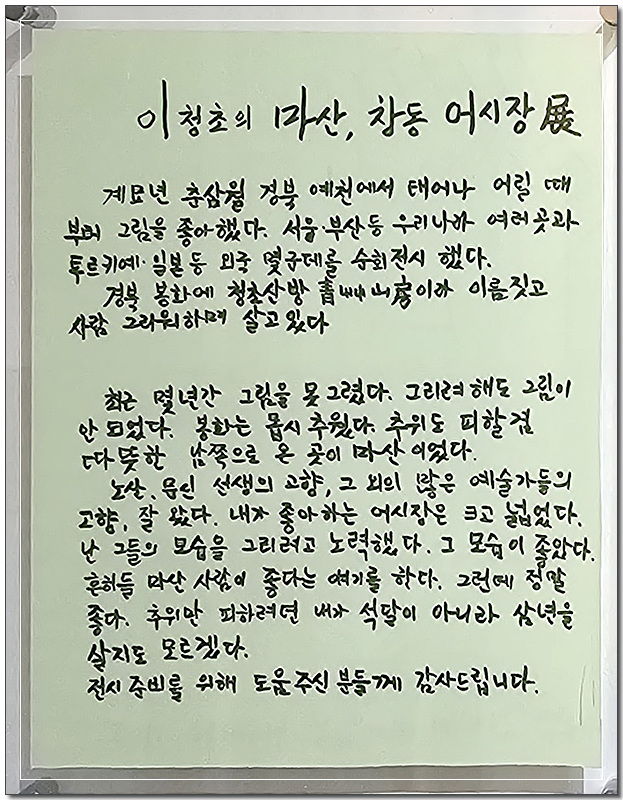 이청초의 마산, 창동 어시장 展
계묘년 춘삼월 경북 예천에서 태어나 어릴 때
부터 그림을 좋아했다. 서울·부산등 우리나라 여러곳과
투르키예·일본등 외국 몇군데를 순회전시 했다.
경북 봉화에 청초산방 靑艸山房이라 이름짓고
사람 그리워하며 살고있다
최근 몇년간 그림을 못그렸다. 그리려해도 그림이
안 되었다. 봉화는 몹시 추웠다. 추위도 피할겸
따뜻한 남쪽으로 온 곳이 마산이었다.
노산·문신 선생의 고향, 그 외의 많은 예술가들의
고향, 잘 왔다. 내가 좋아하는 어시장은 크고 넓었다.
난 그들의 모습을 그리려고 노력했다. 그 모습이 좋았다.
흔히들 마산 사람이 좋다는 얘기를 한다. 그런데 정말
좋다. 추위만 피하려던 내가 석달이 아니라 삼년을
살지도 모르겠다.
전시 준비를 위해 도움주신 분들께 감사드립니다.